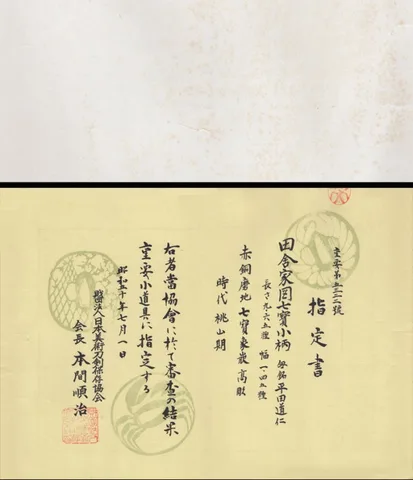 指定書
田舎家図七宝小柄 無銘 平田道仁
長さ九・六五糎 幅一・四五糎
赤銅磨地 七宝象嵌 高彫
時代 桃山期
右者當協會に於て審査の結果
重要小道具に指定する
昭和五十年七月一日
財團法人日本美術刀剣保存協会
会長 本間順治